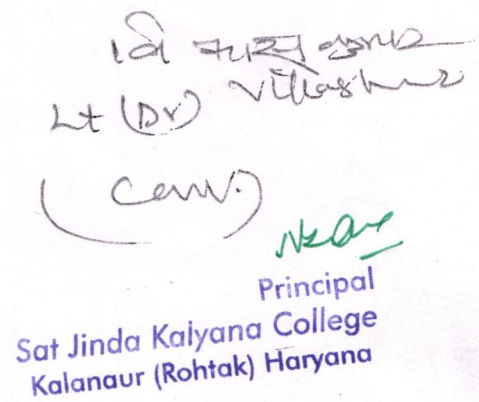 विकास कुमार
Lt (Dr) Vikas Kumar
(Conv.)
Principal
Sat Jinda Kalyana College
Kalanaur (Rohtak) Haryana